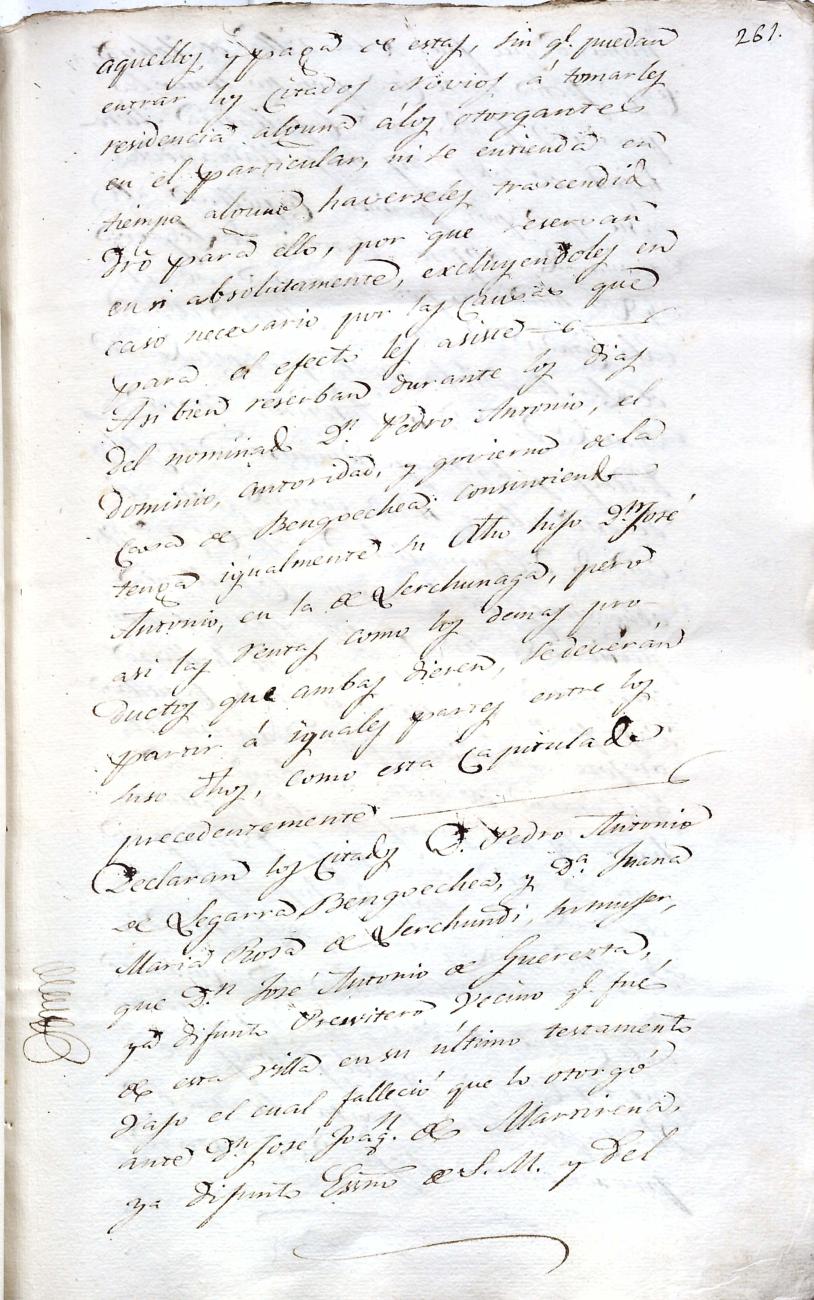 261.
aquellos, y paga de estas, sin q.e puedan
entrar los citados Novios á tomarles
residencia alguna á los otorgantes
en el particular, ni se entienda en
tiempo alguno haverseles trascendido
dro para ello, por que reservan
en si absolutamente, excluyendoles en
caso necesario por las causas que
para el efecto les asiste
Asi bien reserban durante los dias
del nominado D.n Pedro Antonio, el
dominio, autoridad, y govierno de la
Casa de Bengoechea, consintiendo
tenga igualmente su dho hijo D.n José
Antonio, en la de Lerchunaga, pero
asi las rentas como los demas pro-
ductos que ambas dieren, se deverán
partir á iguales partes entre los
suso dhos, como esta Capitulado
precedentemente
Declaran los citados D. Pedro Antonio
de Legarra Bengoechea, y D.a Juana
Maria Rosa de Lerchundi, su muger,
que D.n José Antonio de Guerezta,
ya difunto Presvitero Vecino q.e fué
de esta Villa en su último testamento
vajo el cual falleció que lo otorgó
ante D.n José Joaq.n de Martirena,
ya difunto Essno de S. M. y del